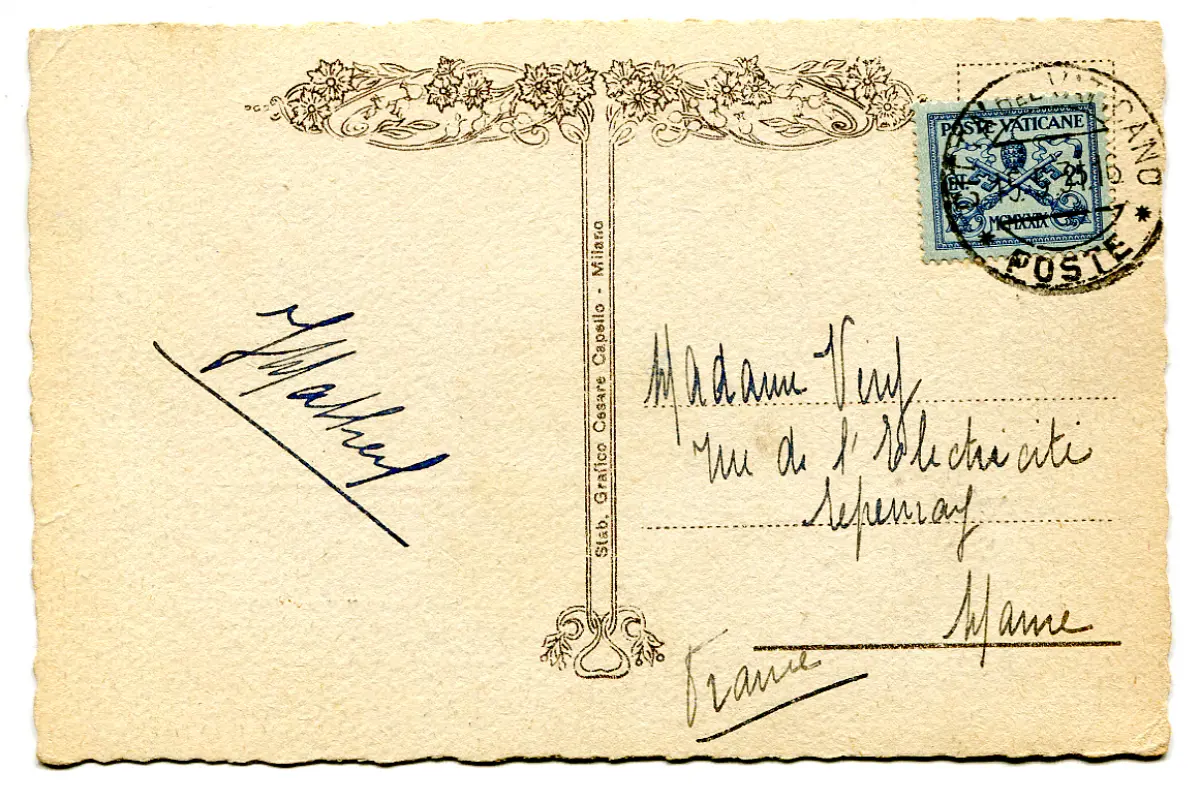 CITTÀ DEL VATICANO
POSTE
POSTE VATICANE
25
MCMXXIX
Stab. Grafico Cesare Capello - Milano
Madame
rue de l'Electricité
Epernay
Marne
France